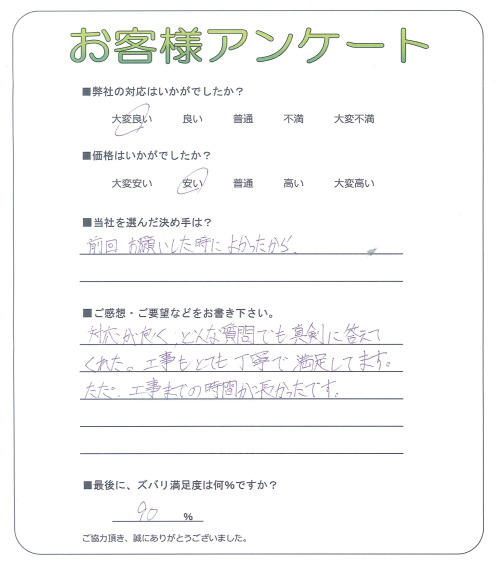 お客様アンケート
■弊社の対応はいかがでしたか？
大変良い 良い 普通 不満 大変不満
■価格はいかがでしたか？
大変安い 安い 普通 高い 大変高い
■当社を選んだ決め手は？
前回お願いした時によかったから、
■ご感想・ご要望などをお書き下さい。
対応が良く、どんな質問でも真剣に答えて
くれた。工事もとても丁寧で満足してます。
ただ、工事までの時間が長かったです。
■最後に、ズバリ満足度は何％ですか？
90 ％
ご協力頂き、誠にありがとうございました。